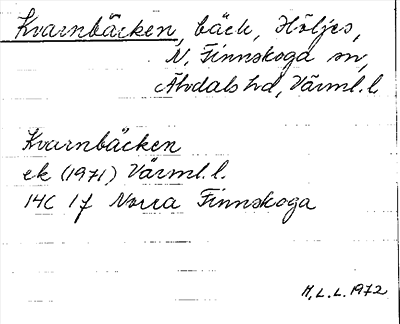 Kvarnbäcken, bäck, Höljes,
N. Finnskoga sn,
Älvdals hd, Värml. l
Kvarnbäcken
ek (1971) Värml. l.
14C 1f Norra Finnskoga
M. L. L. 1972